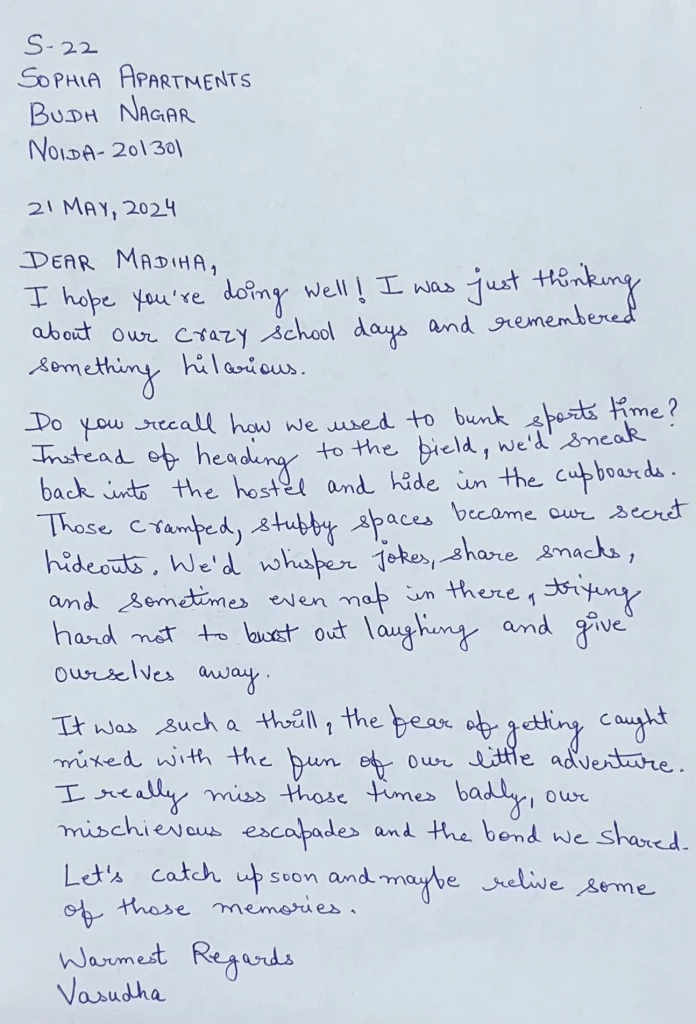 S-22
SOPHIA APARTMENTS
BUDH NAGAR
NOIDA-201301
21 MAY, 2024
DEAR MADIHA,
I hope you're doing well! I was just thinking
about our crazy school days and remembered
something hilarious.
Do you recall how we used to bunk sports time?
Instead of heading to the field, we'd sneak
back into the hostel and hide in the cupboards.
Those cramped, stubby spaces became our secret
hideouts. We'd whisper jokes, share snacks,
and sometimes even nap in there, triying
hard not to burst out laughing and give
ourselves away.
It was such a thrill, the fear of getting caught
mixed with the fun of our little adventure.
I really miss those times badly, our
mischievous escapades and the bond we shared.
Let's catch up soon and maybe relive some
of those memories.
Warmest Regards
Vasudha